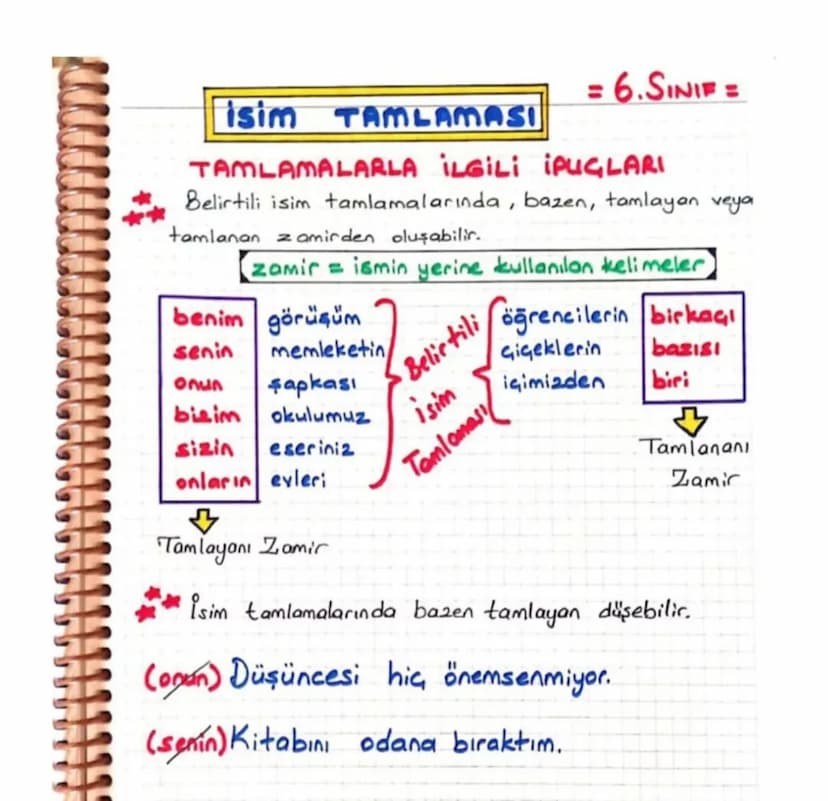 = 6.SINIF =
İSİM TAMLAMASI
TAMLAMALARLA İLGİLİ İPUÇLARI
Belirtili isim tamlamalarında, bazen, tamlayan veya
tamlanan zamirden oluşabilir.
zamir = ismin yerine kullanılan kelimeler
benim görüşüm
senin memleketin
onun şapkası
bizim okulumuz
sizin eseriniz
onların evleri
Belirtili
İsim
Tamlaması
öğrencilerin birkaçı
çiçeklerin bazısı
içimizden biri
Tamlananı
Zamir
Tamlayanı Zamir
İsim tamlamalarında bazen tamlayan düşebilir.
(onun) Düşüncesi hiç önemsenmiyor.
(senin) Kitabını odana bıraktım.